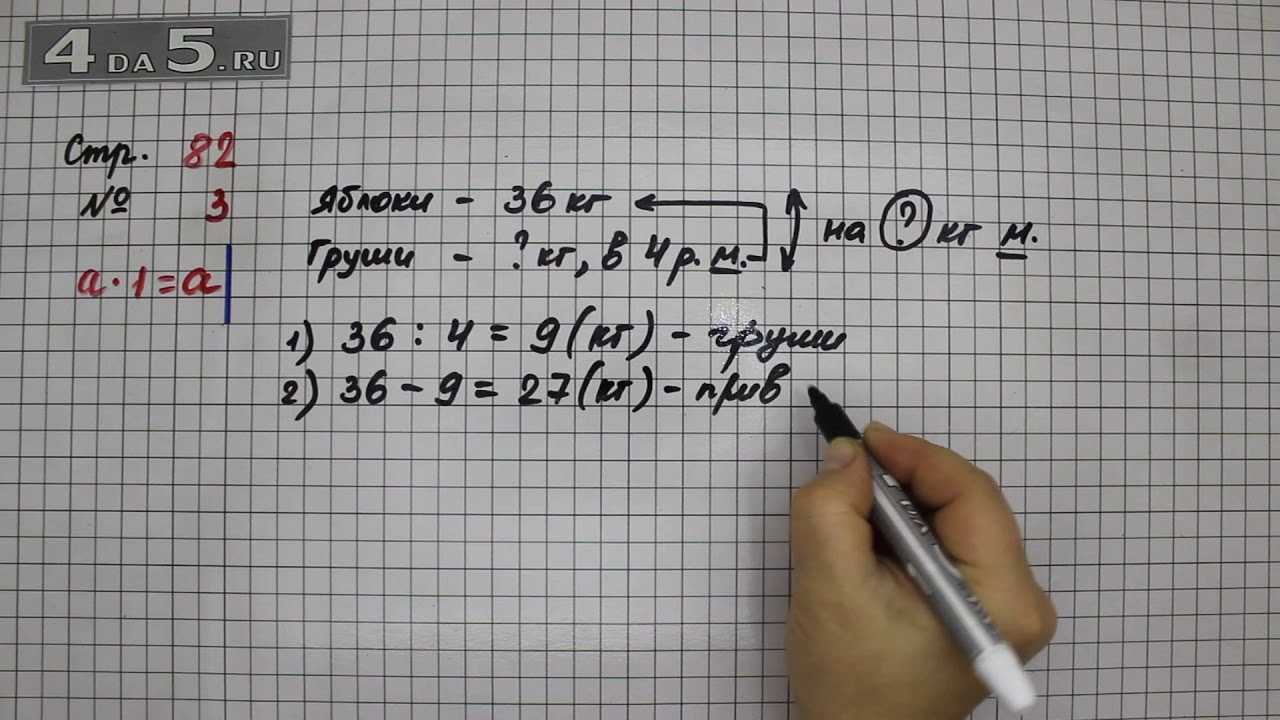 4DA5.RU
Стр. 82
№ 3
a · 1 = a
Яблоки - 36 кг
Груши - ? кг, в 4 р. м.
на ? кг м.
1) 36 : 4 = 9 (кг) - груши
2) 36 - 9 = 27 (кг) - прив